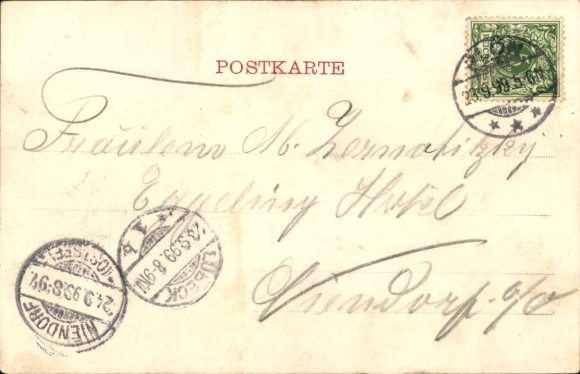 POSTKARTE
23.9.99.5-6N
Fräulein M. Zernotitzky
Hotel
Niendorf a/o
LÜBECK
23.9.99.8-9N
1 b
NIENDORF
(OSTSEE)
24.9.99.8-9V.